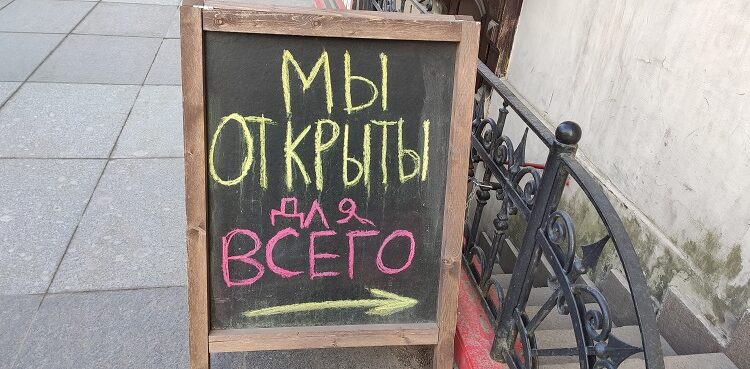 МЫ
ОТКРЫТЫ
ДЛЯ
ВСЕГО